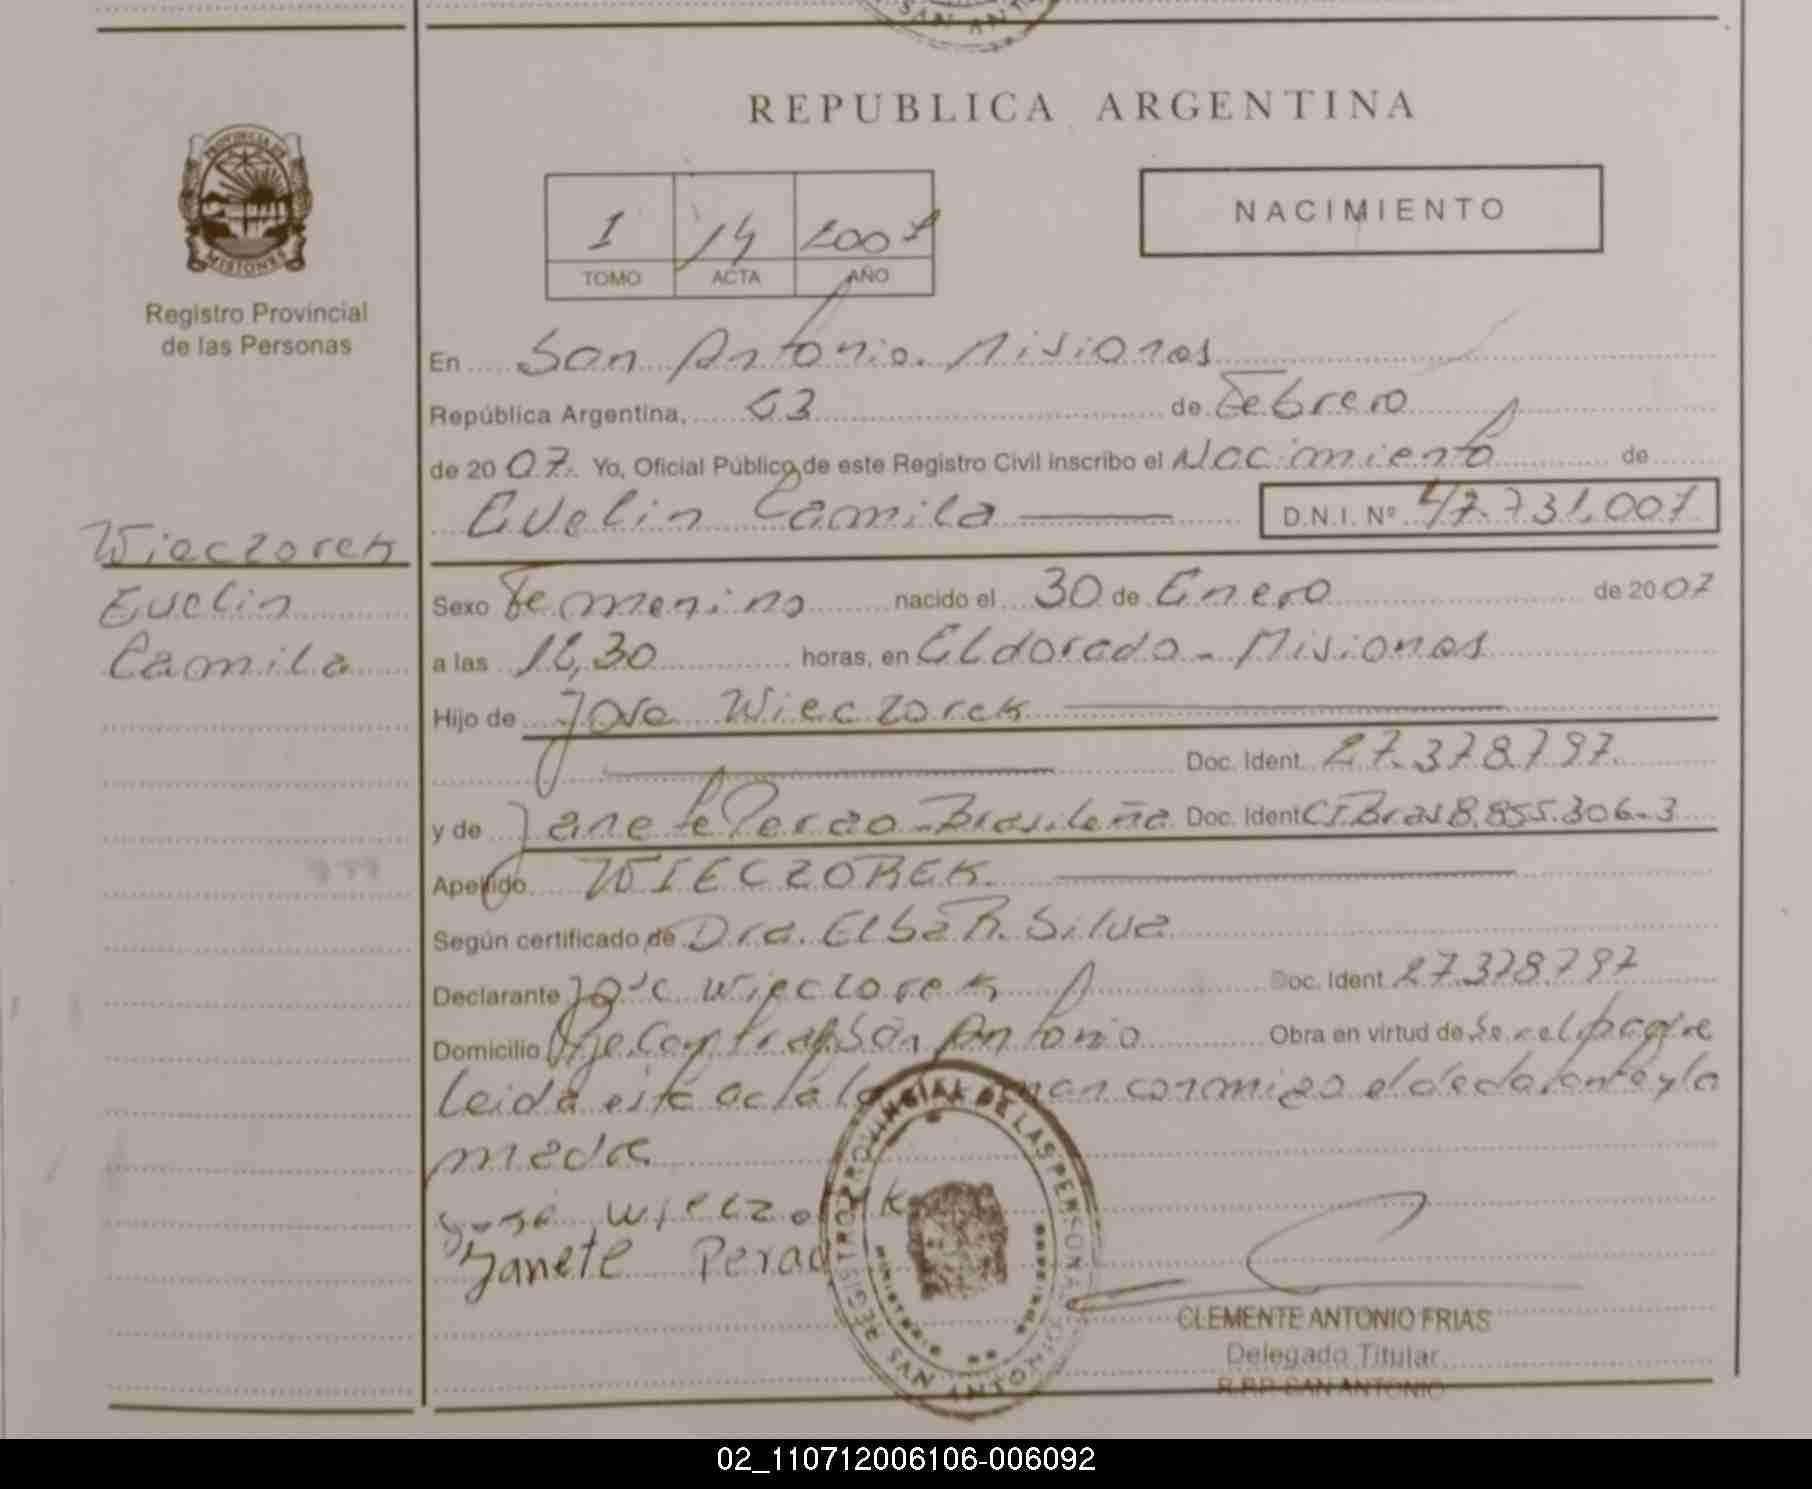 SAN ANTO
REPUBLICA ARGENTINA
PROVINCIA DE
MISIONES
Registro Provincial
de las Personas
1 14 2007
TOMO ACTA AÑO
NACIMIENTO
En San Antonio. Misiones
República Argentina, 03 de Febrero
de 2007. Yo, Oficial Público de este Registro Civil inscribo el Nacimiento de
Evelin Camila D.N.I. Nº 47.731.007
Wieczorek
Evelin
Camila
Sexo Femenino nacido el 30 de Enero de 2007
a las 1 ,30 horas, en Eldorado - Misiones
Hijo de Jose Wieczorek
Doc. Ident. 27.378.797.
y de Janete Perao - Brasileña Doc. Ident CI.Bras 8.855.306-3
Apellido WIECZOREK.
Según certificado de Dra. Elba R. Silva
Declarante José Wieczorek Doc. Ident. 27.378.797
Domicilio San Antonio Obra en virtud de Ser el padre
Leida esta acta la man conmigo el declarante y la
madre
José Wieczorek
Janete Perao
REGISTRO PROVINCIAL DE LAS PERSONAS
MINISTERIO
SAN ANTONIO
CLEMENTE ANTONIO FRIAS
Delegado Titular
R.P.P. SAN ANTONIO
02_110712006106-006092